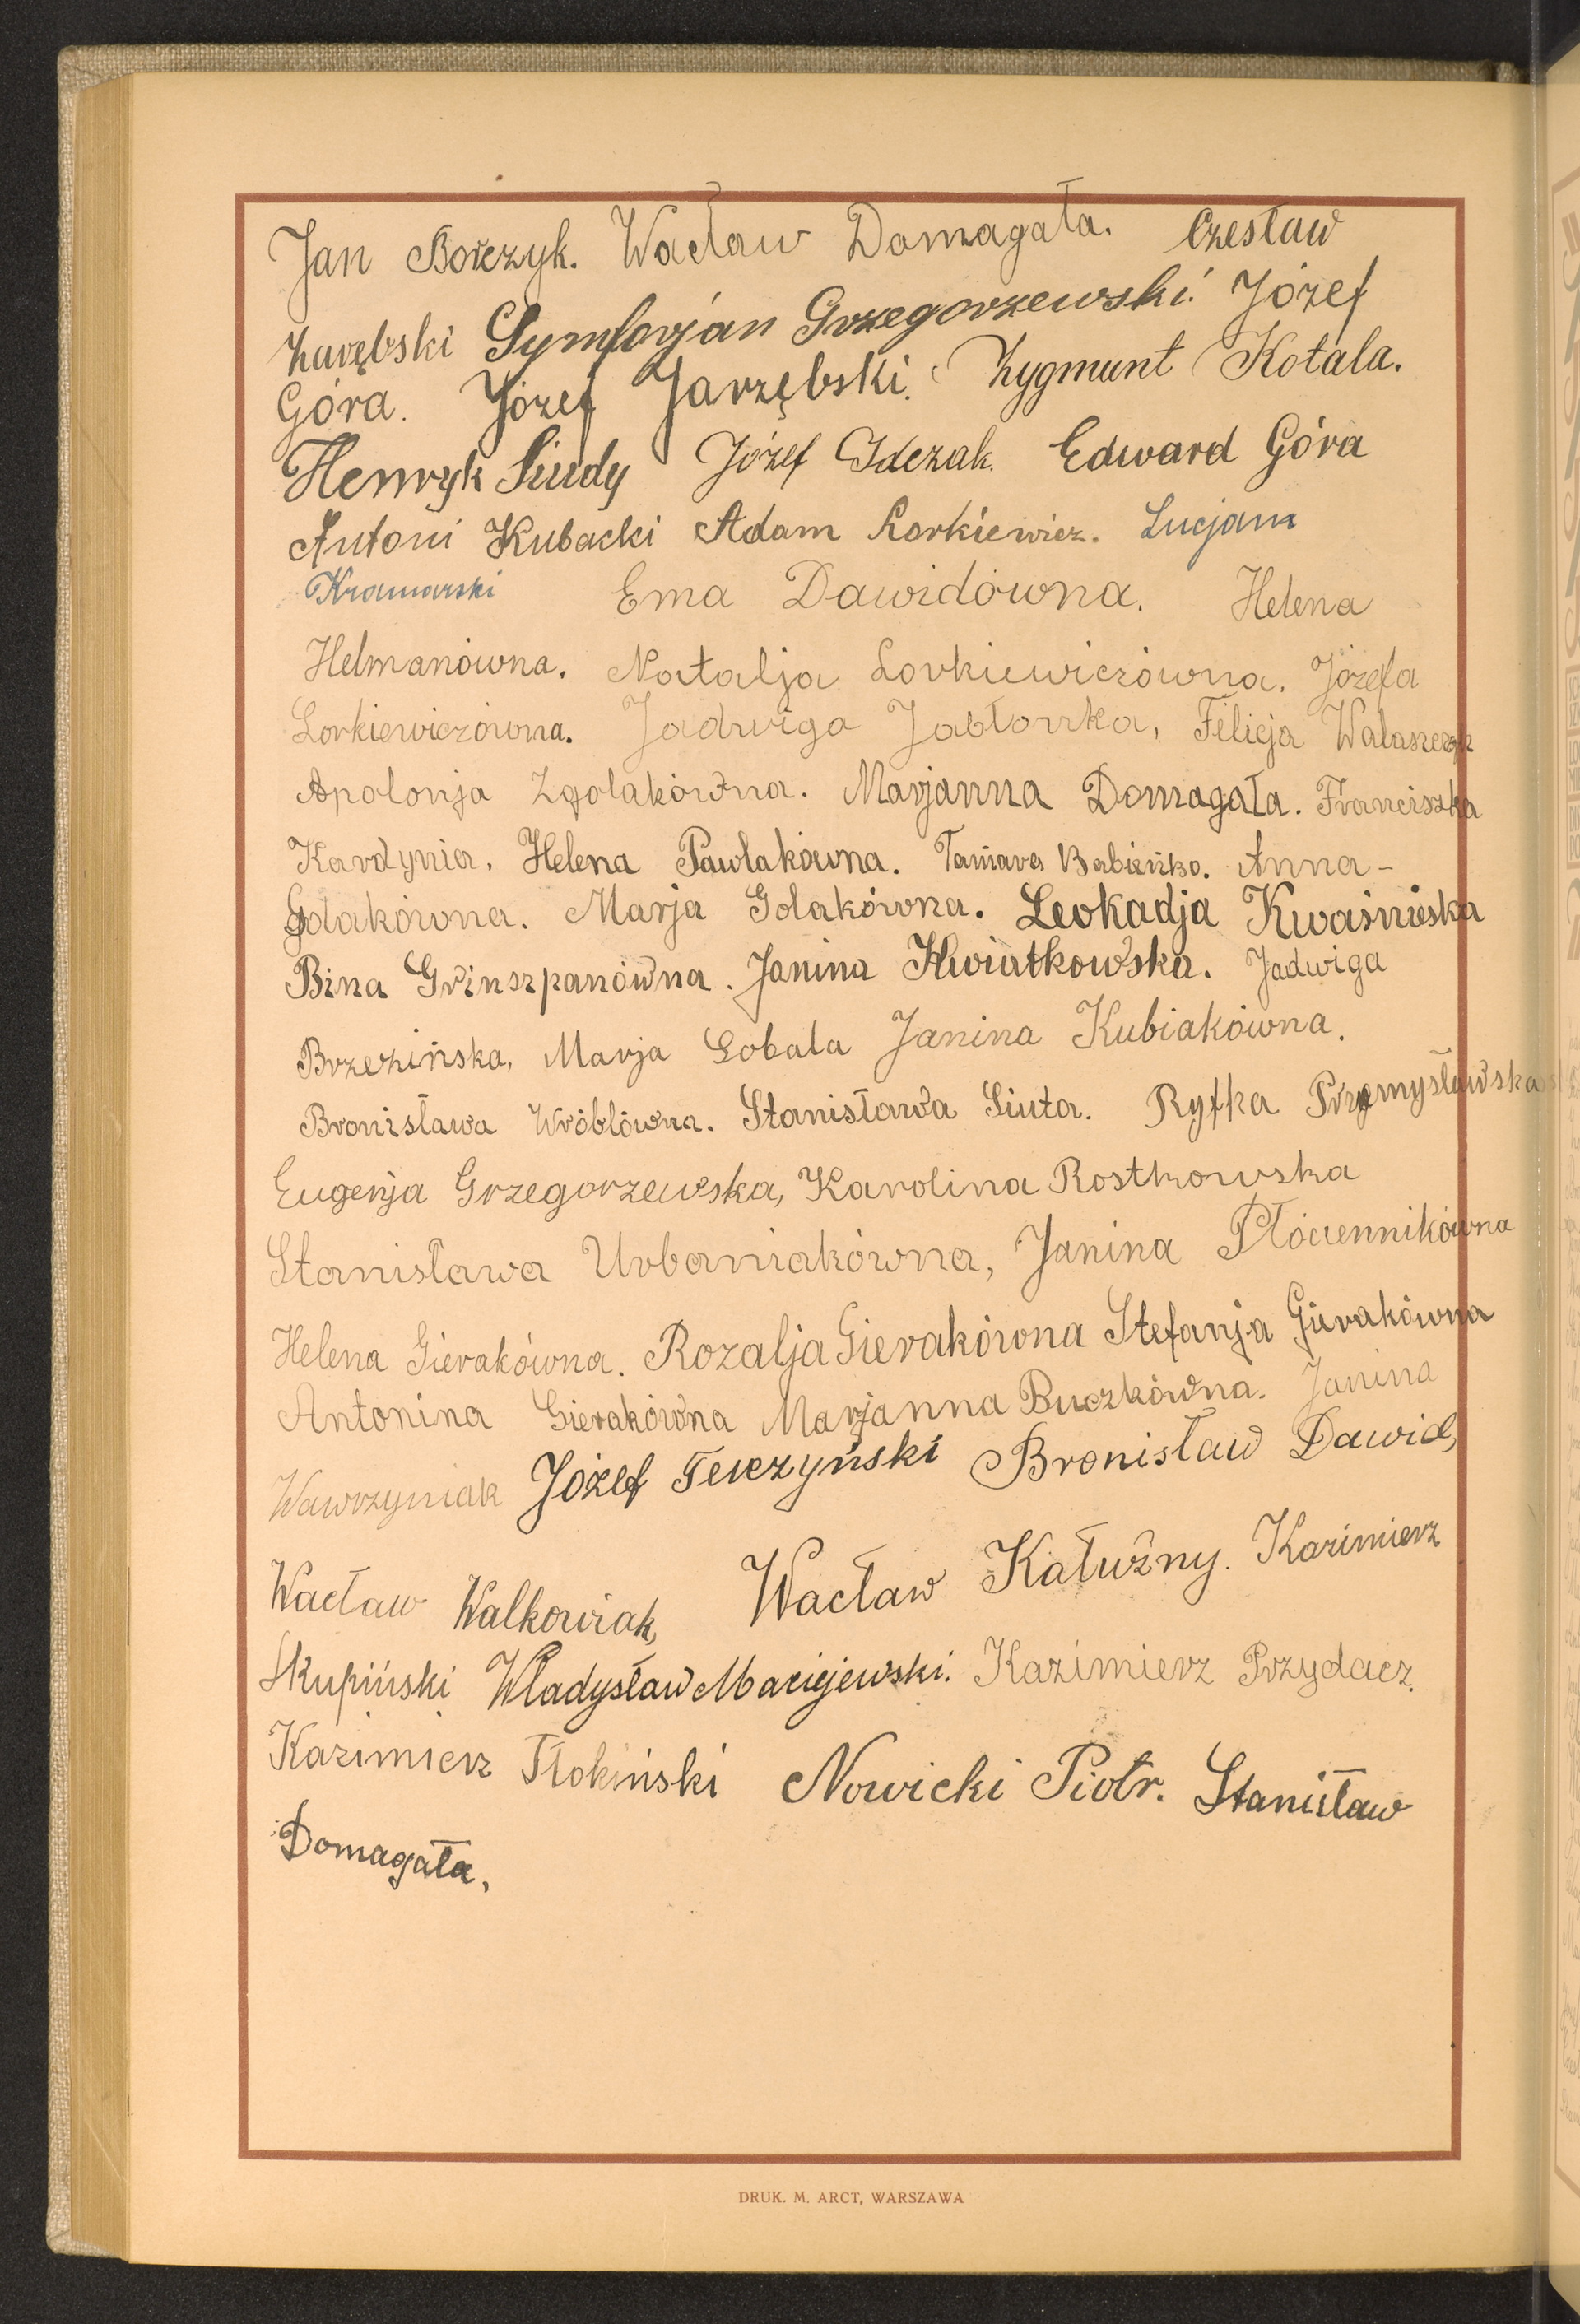 Jan Borczyk. Wacław Domagała. Czesław
Zarębski Symforjan Grzegorzewski. Józef
Góra. Józef Jarzębski. Zygmunt Kotala.
Henryk Siudy Józef Idczak. Edward Góra
Antoni Kubacki Adam Lorkiewicz. Lucjam
Kramarski Ema Dawidówna. Helena
Helmanówna. Natalja Lorkiewiczówna. Józefa
Lorkiewiczówna. Jadwiga Jabłonka, Felicja Walaszczyk
Apolonja Zgolakówna. Marjanna Domagała. Franciszka
Kardynia. Helena Pawlakówna. Tamara Babieńko. Anna-
Golakówna. Marja Golakówna. Leokadja Kwaśnieska
Bina Grinszpanówna. Janina Kwiatkowska. Jadwiga
Brzezińska, Marja Lobala Janina Kubiakówna.
Bronisława Wróblówna. Stanisława Siuta. Ryfka Przemysławska
Eugenja Grzegorzewska, Karolina Rostkowska
Stanisława Urbaniakówna, Janina Płóciennikówna
Helena Gierakówna. Rozalja Gierakówna Stefanja Gierakówna
Antonina Gierakówna Marjanna Buczkówna. Janina
Wawrzyniak Józef Teoczyński Bronisław Dawid,
Wacław Walkowiak, Wacław Kałużny. Kazimierz
Skupiński Władysław Maciejewski. Kazimierz Przydacz.
Kazimierz Tłokiński Nowicki Piotr. Stanisław
Domagała.
DRUK. M. ARCT, WARSZAWA